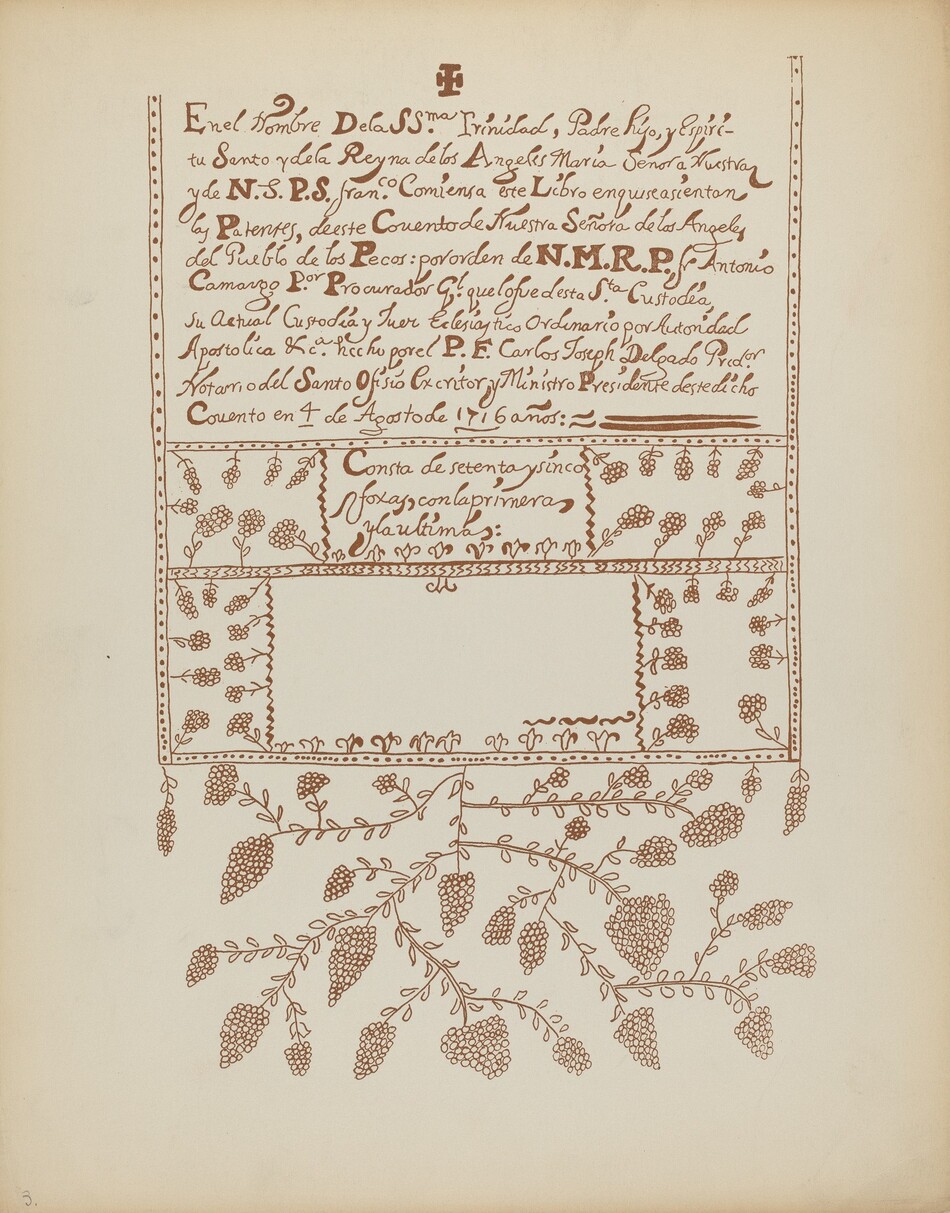 En el Nombre De la SS.ma Trinidad, Padre hijo, y Espiri-
tu Santo y dela Reyna de los Angeles Maria Señora Nuestra
y de N.S.P.S. fran.co Comiensa este Libro en quese asientan
las Patentes, de este Couento de Nuestra Señora de los Angeles
del Pueblo de los Pecos: por orden de N.M.R.P. fr Antonio
Camargo P.or Procurador G.l que lo fue desta S.ta Custodia,
su Actual Custodia y Juez Eclesiastico Ordinario por Autoridad
Apostolica &c.a hecho por el P. F. Carlos Joseph Delgado Pred.or
Notario del Santo Ofisio Excritor y Ministro Presidente deste dicho
Couento en 4 de Agosto de 1716 años:
Consta de setenta y sinco
foxas, con la primera
y la ultima:
3.